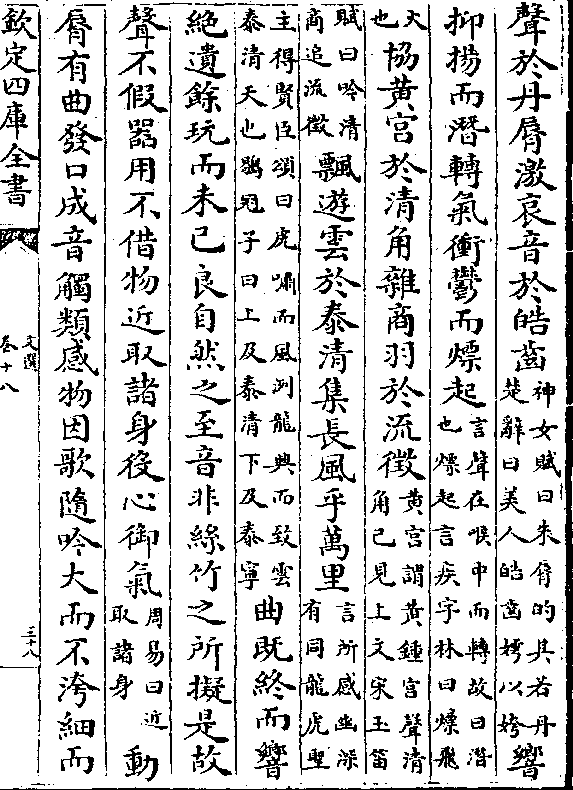 聲於丹脣激哀音於皓齒神女賦曰朱脣的其若丹楚辭曰美人皓齒嫮以姱響
抑揚而潛轉氣衝鬱而熛起言聲在喉中而轉故曰潛也熛起言疾字林曰熛飛
火也協黃宮於清角雜商羽於流徵黃宮謂黃鍾宮聲清角已見上文宋玉笛
賦曰吟清商追流徵飄遊雲於泰清集長風乎萬里言所感幽深有同龍虎聖
主得賢臣頌曰虎嘯而風洌龍興而致雲泰清天也鶡冠子曰上及泰清下及泰寧曲既終而響
絶遺餘玩而未已良自然之至音非絲竹之所擬是故
聲不假器用不借物近取諸身役心御氣周易曰近取諸身動
脣有曲發口成音觸類感物因歌隨吟大而不洿細而
欽定四庫全書
文選
卷十八
三十八